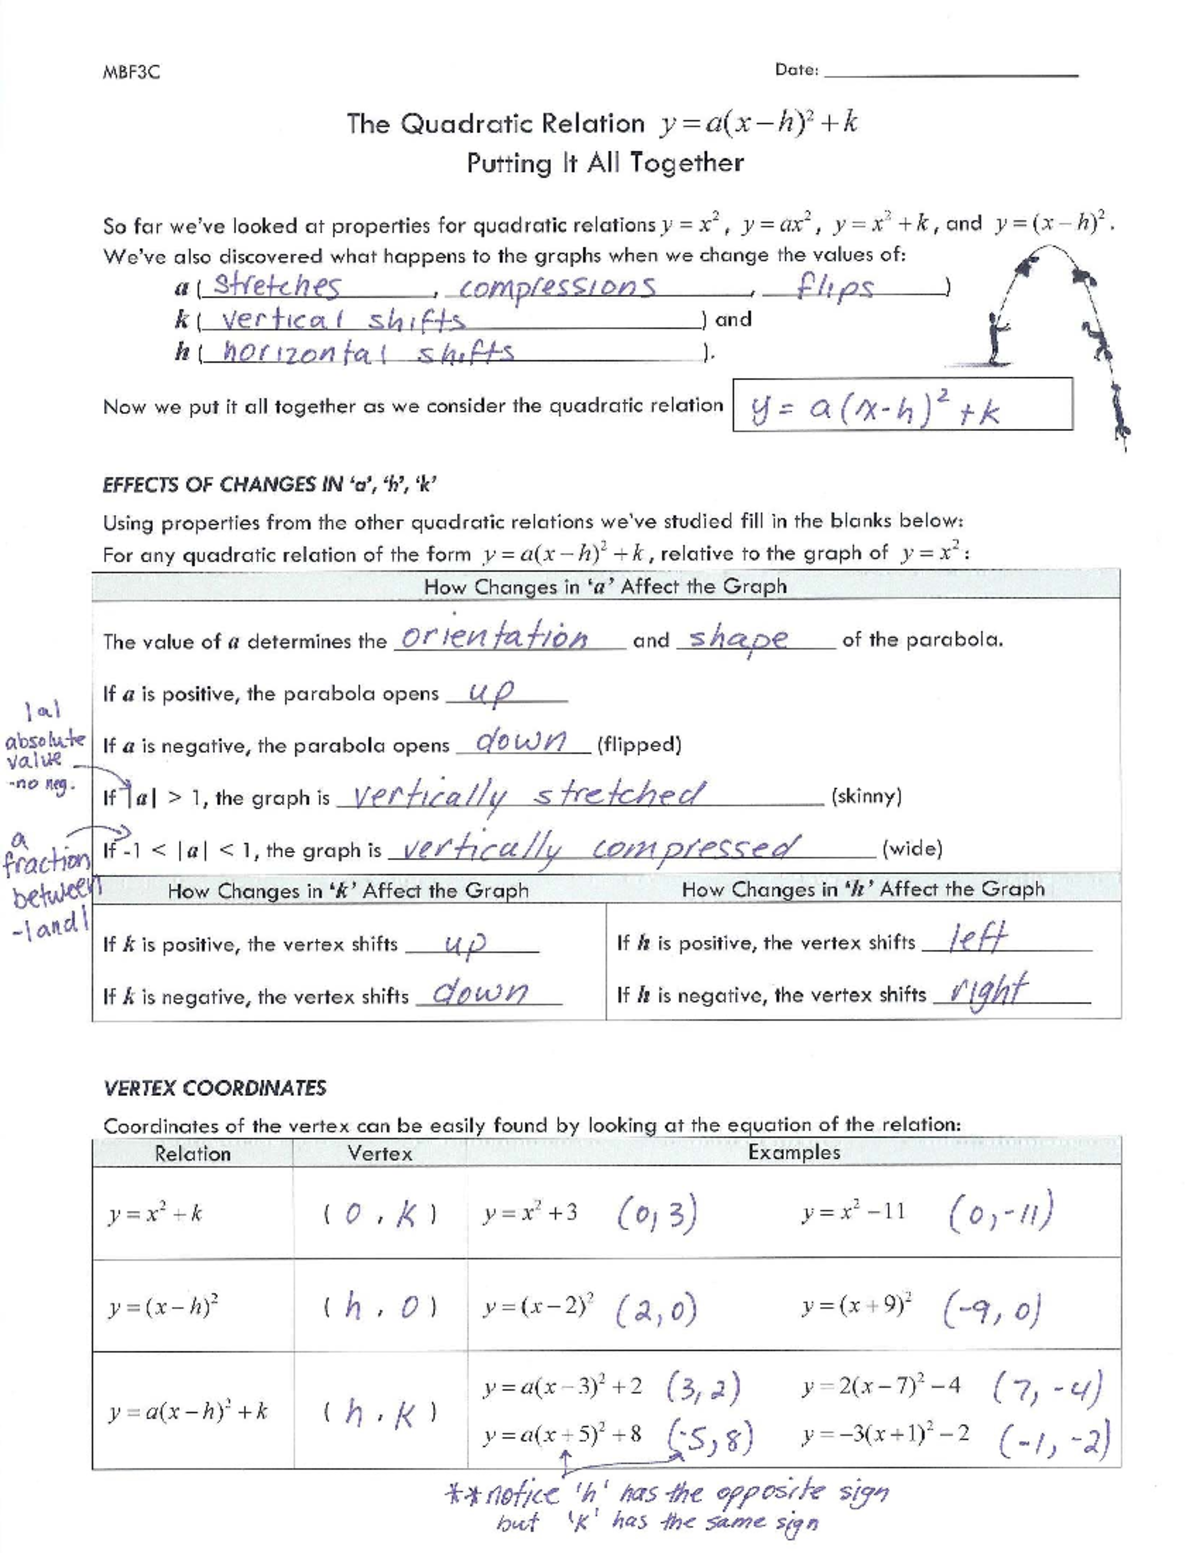 MBF3C Date:
The Quadratic Relation y = a(x − h)² + k
Putting It All Together
So far we've looked at properties for quadratic relations y = x², y = ax², y = x² + k, and y = (x − h)².
We've also discovered what happens to the graphs when we change the values of:
a ( stretches, compressions, flips )
k ( vertical shifts ) and
h ( horizontal shifts ).
Now we put it all together as we consider the quadratic relation y = a(x-h)² + k
EFFECTS OF CHANGES IN 'a', 'h', 'k'
Using properties from the other quadratic relations we've studied fill in the blanks below:
For any quadratic relation of the form y = a(x − h)² + k, relative to the graph of y = x²:
How Changes in 'a' Affect the Graph
The value of a determines the orientation and shape of the parabola.
If a is positive, the parabola opens up
If a is negative, the parabola opens down (flipped)
If |a| > 1, the graph is vertically stretched (skinny)
If -1 < |a| < 1, the graph is vertically compressed (wide)
|a|
absolute
value
-no neg.
a
fraction
between
-1 and 1
How Changes in 'k' Affect the Graph
If k is positive, the vertex shifts up
If k is negative, the vertex shifts down
How Changes in 'h' Affect the Graph
If h is positive, the vertex shifts left
If h is negative, the vertex shifts right
VERTEX COORDINATES
Coordinates of the vertex can be easily found by looking at the equation of the relation:
Relation Vertex Examples
y = x² + k ( 0 , k ) y = x² + 3 (0, 3) y = x² − 11 (0, -11)
y = (x − h)² ( h , 0 ) y = (x − 2)² (2, 0) y = (x + 9)² (-9, 0)
y = a(x − h)² + k ( h , k ) y = a(x − 3)² + 2 (3, 2) y = 2(x − 7)² − 4 (7, -4)
y = a(x + 5)² + 8 (-5, 8) y = −3(x + 1)² − 2 (-1, -2)
**notice 'h' has the opposite sign
but 'k' has the same sign